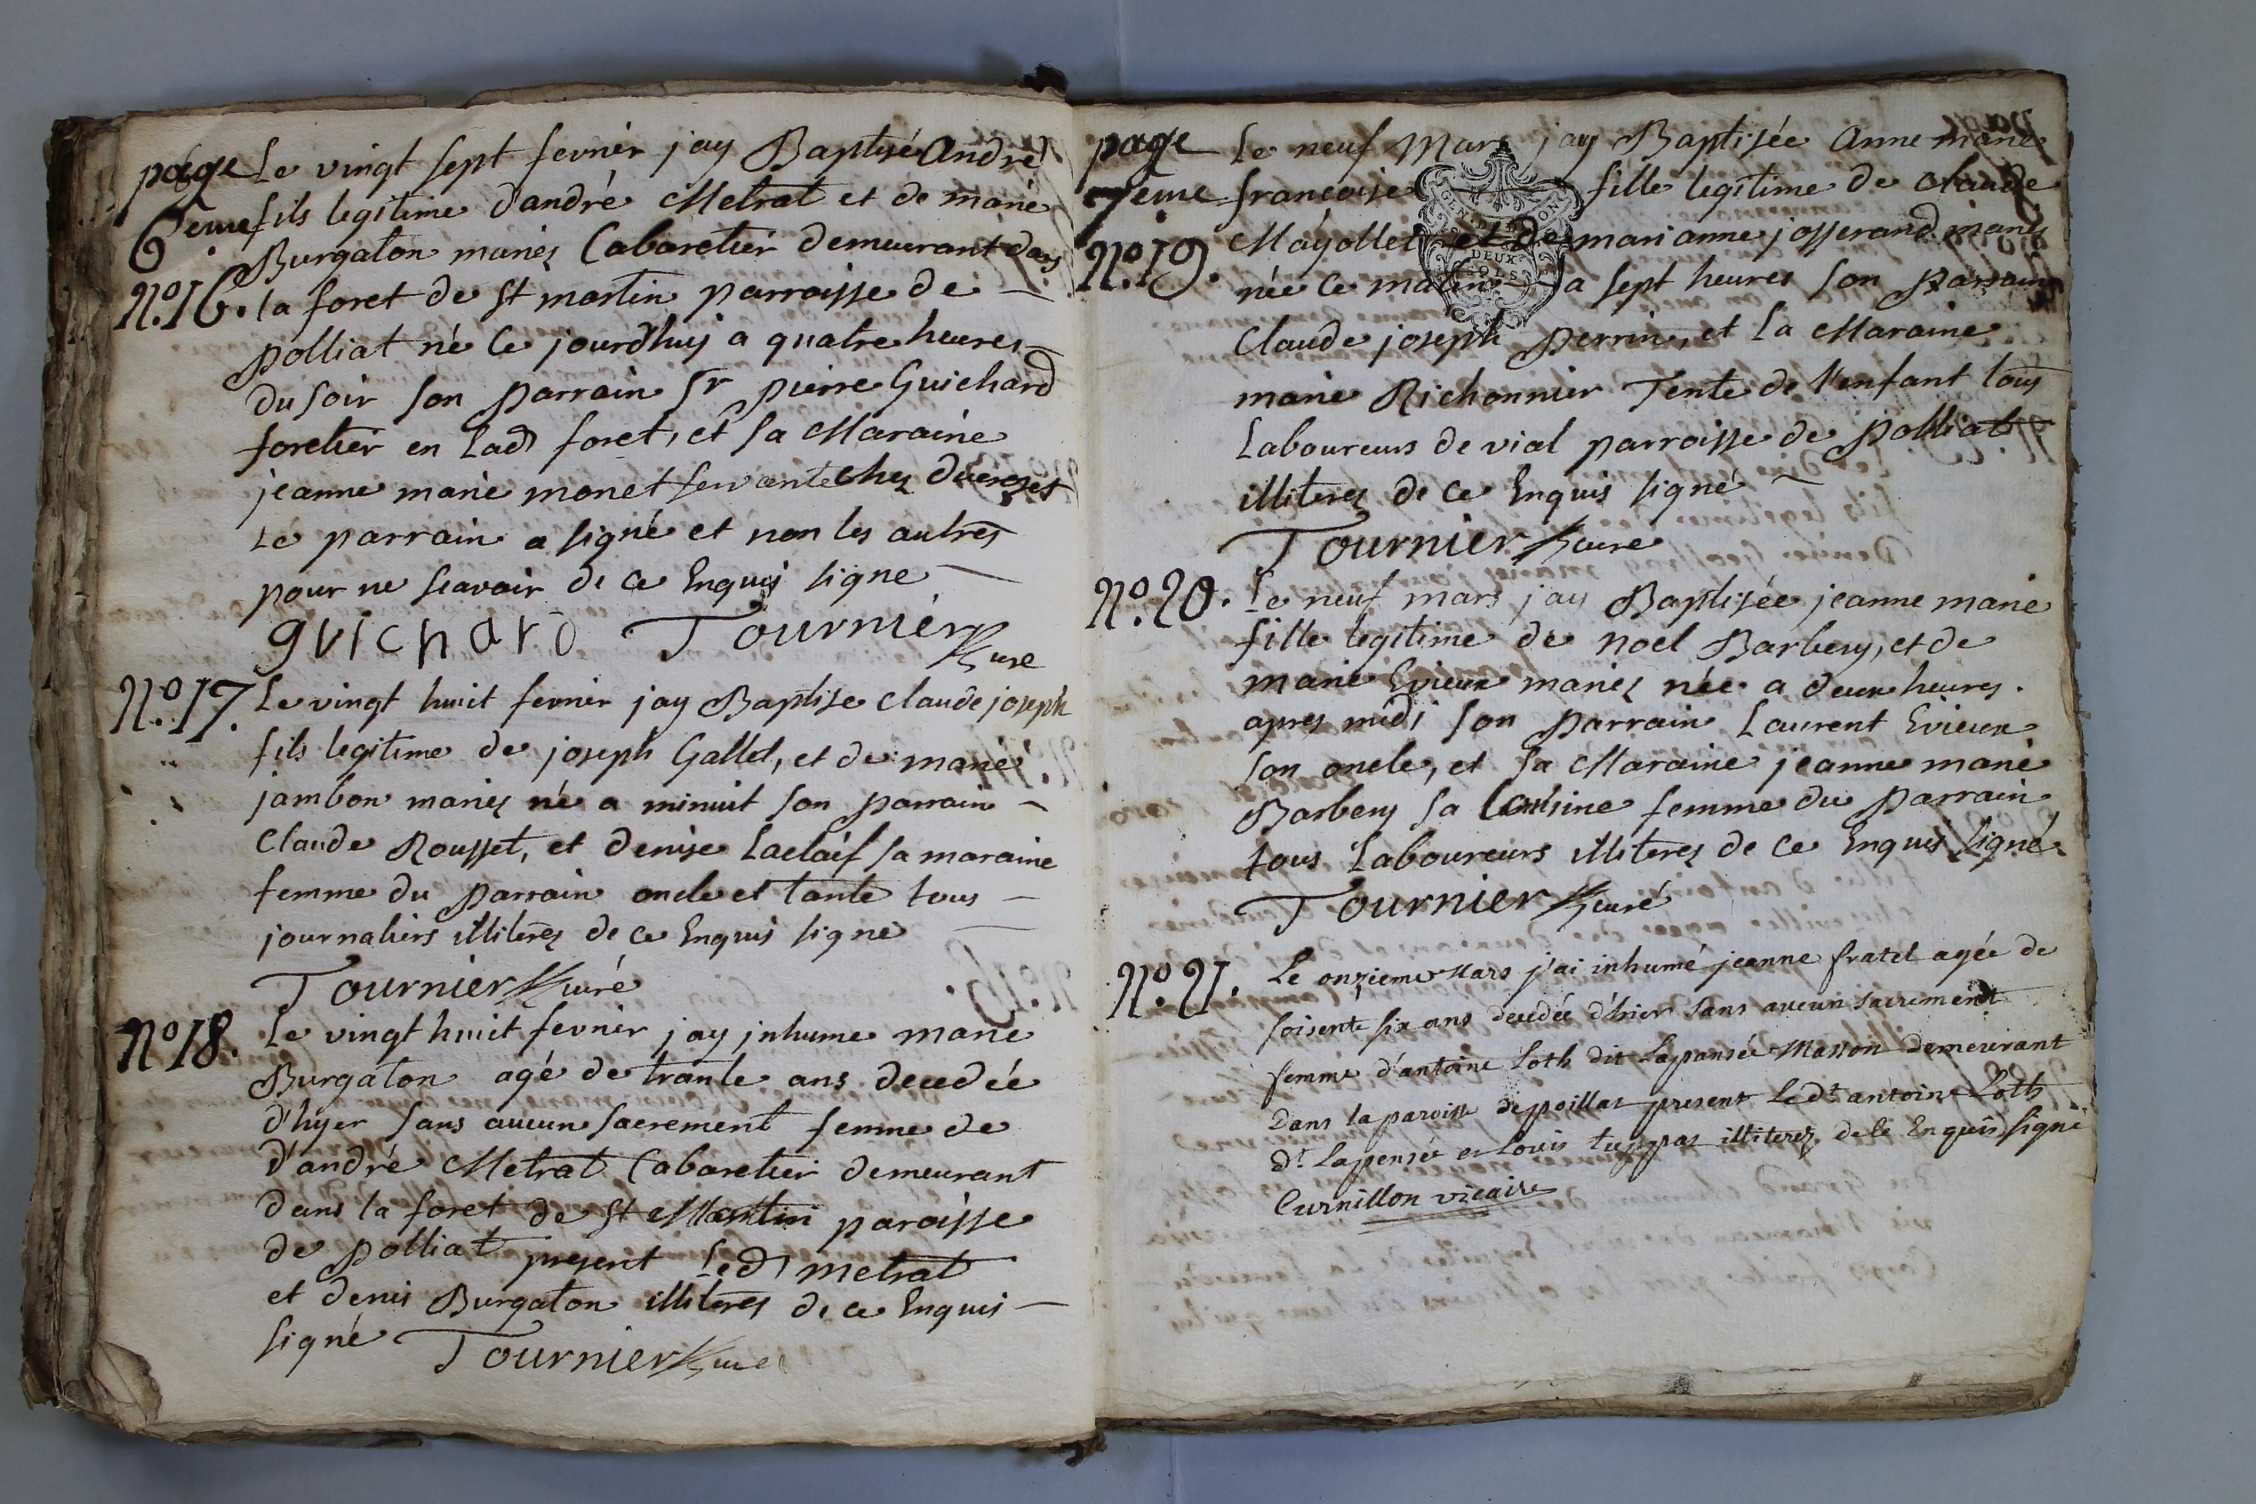 page
6eme
Le vingt sept fevrier jay Baptisé André
fils legitime d'andré Metrat et de marie
Burgaton mariez Cabaretier demeurant dans
N.o 16.
la foret de St martin parroisse de
polliat né Ce jourdhuy a quatre heures
du soir son parrain Sr pierre Guichard
foretier en lad foret, et sa Maraine
jeanne marie monet servante chez
Le parrain a signé et non les autres
pour ne scavoir de ce Enquis signe
guichard Tournier Cure
N.o 17.
Le vingt huit fevrier jay Baptise Claude joseph
fils legitime de joseph Gallet, et de marie
jambon mariez né a minuit son parrain
Claude Rousset, et denise Laclaif sa maraine
femme du parrain oncle et tante tous
journaliers illiterez de ce Enquis signé
Tournier Curé
No 18.
Le vingt huit fevrier jay jnhume marie
Burgaton agé de trante ans decedée
d'hyer sans aucun sacrement femme de
d'andré Metrat Cabaretier demeurant
dans la foret de St Martin paroisse
de polliat present Led metrat
et denis Burgaton illiteres de ce Enquis
signé Tournier Cure
page
7eme
Le neuf Mars jay Baptisée Anne marie
francoise fille legitime de Claude
N.o 19.
Mayollet et de marianne josserand mariez
née Ce matin a sept heures son parrain
Claude joseph perrin, et La Maraine
marie Richonnier Tente de l'enfant tous
Laboureurs de vial parroisse de polliat
illiterez de ce Enquis signé
Tournier Cure
GEN. DE DIJON
DEUX
SOLS
N.o 20.
Le neuf mars jay Baptisée jeanne marie
fille legitime de noel Barbery, et de
marie Evieux mariez née a deux heures
apres midi son parrain Laurent Evieux
son oncle, et sa Maraine jeanne marie
Barbery sa Cousine femme du parrain
tous Laboureurs illiterez de ce Enquis signé
Tournier Curé
N.o 21.
Le onzieme Mars j'ai inhumé jeanne fratet agée de
soisente six ans decedée d'hier sans aucun sacrement
femme d'antoine Loth dit Lapansée Masson demeurant
Dans la paroisse de poillat present Ledt antoine Loth
dt Lapensée et Louis tuppas illiterez de ce Enquis signé
Curnillon vicaire